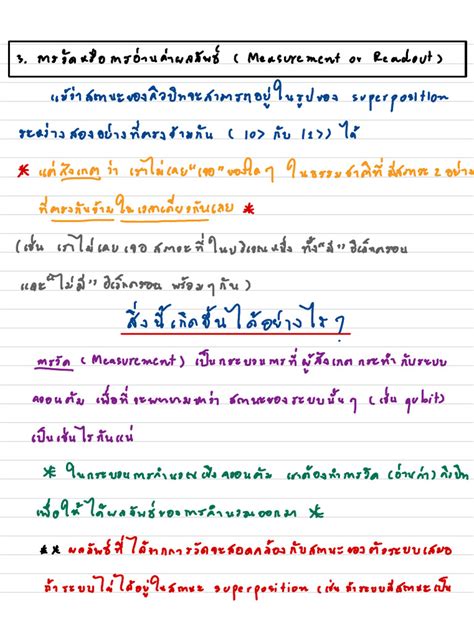 3. การวัดหรือการอ่านค่าผลลัพธ์ ( Measurement or Readout )
แม้ว่าสถานะของคิวบิทจะสามารถอยู่ในรูปของ superposition
ระหว่างสองอย่างที่ตรงข้ามกัน ( |0> กับ |1> ) ได้
* แต่สังเกตว่า เราไม่เคย "เจอ" ของใดๆ ในธรรมชาติที่มีสถานะ 2 อย่าง
ที่ตรงกันข้ามในเวลาเดียวกันเลย *
(เช่น เราไม่เคยเจอสถานะที่ในบริเวณหนึ่ง ทั้ง "มี" อิเล็กตรอน
และ "ไม่มี" อิเล็กตรอน พร้อมๆกัน )
สิ่งนี้เกิดขึ้นได้อย่างไร ?
การวัด ( Measurement ) เป็นกระบวนการที่ผู้สังเกตกระทำกับระบบ
ควอนตัม เพื่อที่จะพยายามหาว่า สถานะของระบบนั้นๆ ( เช่น qubit )
เป็นเช่นไรกันแน่
* ในกระบวนการคำนวณเชิงควอนตัม เราต้องทำการวัด (อ่านค่า) คิวบิท
เพื่อให้ได้ผลลัพธ์ของการคำนวณออกมา *
** ผลลัพธ์ที่ได้จากการวัดจะสอดคล้องกับสถานะของตัวระบบเสมอ
ถ้าระบบไม่ได้อยู่ในสถานะ superposition ( เช่น ถ้าระบบมีสถานะเป็น